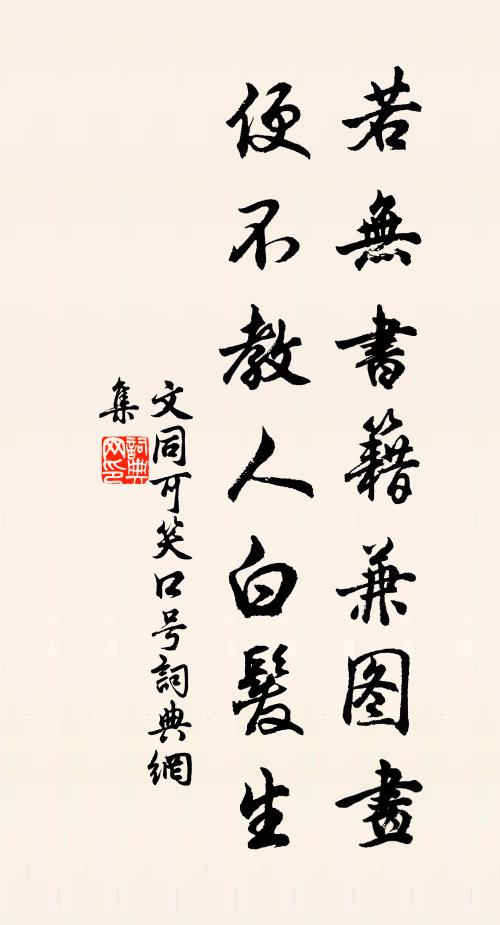 若無書籍兼图畫
便不教人白髮生
文同可笑口号詞典網
集
詞典网印